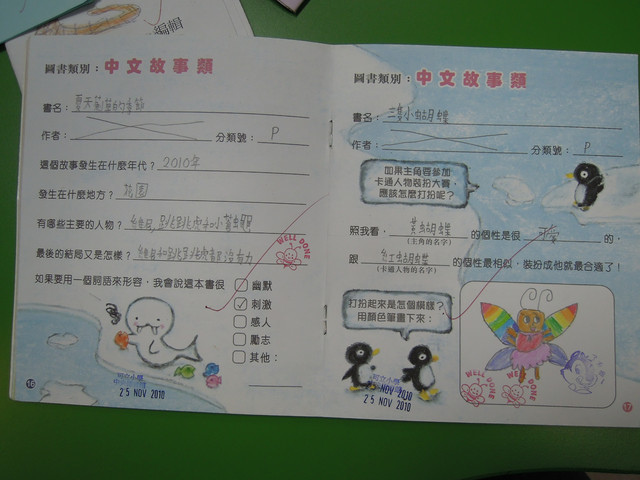 編輯
圖書類別：中文故事類
書名：夏天
作者： 分類號：P
這個故事發生在什麼年代？2010年
發生在什麼地方？花園
有哪些主要的人物？維尼、跳跳虎和小
最後的結局又是怎樣？維尼和跳跳虎都沒有
WELL DONE
如果要用一個詞語來形容，我會說這本書很
幽默
刺激
感人
勵志
其他：
25 NOV 2010
16
圖書類別：中文故事類
書名：三隻小蝴蝶
作者： 分類號：P
如果主角要參加
卡通人物裝扮大賽，
應該怎麼打扮呢？
照我看，黃蝴蝶 的個性是很 的，
(主角的名字)
跟 紅蝴蝶 的個性最相似，裝扮成他就最合適了！
(卡通人物的名字)
打扮起來是怎個模樣？
用顏色筆畫下來：
25 NOV 2010
25 NOV 2010
WELL DONE
WELL DONE
17